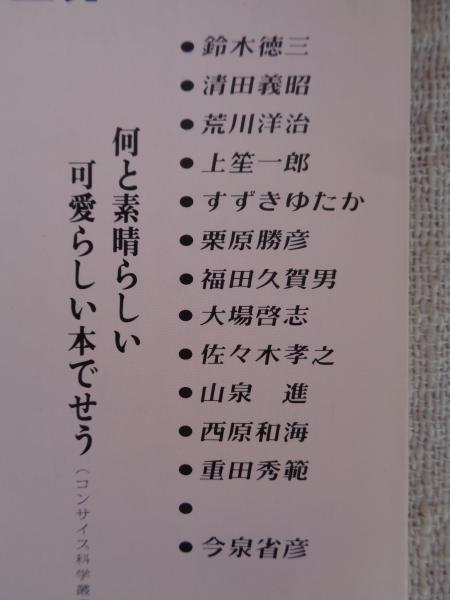 ● 鈴木徳三
● 清田義昭
● 荒川洋治
● 上笙一郎
● すずきゆたか
● 栗原勝彦
● 福田久賀男
● 大場啓志
● 佐々木孝之
● 山泉　進
● 西原和海
● 重田秀範
●
● 今泉省彦
何と素晴らしい
可愛らしい本でせう
（コンサイス科学叢